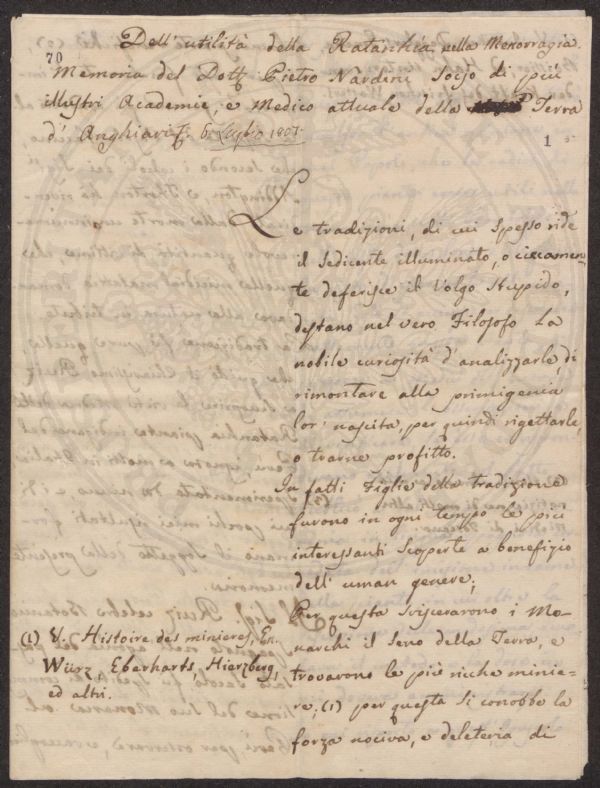 70
Dell' utilità della Ratanchia nella Menorragia.
Memoria del Dott. Pietro Nardini Socio di più
illustri Academie, e Medico attuale della Terra
d' Anghiari 6 Luglio 1807
1
Le tradizioni, di cui spesso ride
il sedicente illuminato, o ciecamen-
te deferisce il Volgo Stupido,
destano nel vero Filosofo la
nobile curiosità d'analizzarle, di
rimontare alla primigenia
lor' nascita, per quindi rigettarle,
o trarne profitto.
In fatti Figlie della tradizione
furono in ogni tempo le più
interessanti Scoperte a benefizio
dell' uman genere;
Per questa sviscerarono i Mo-
narchi il Seno della Terra, e
trovarono le più ricche minie-
re; (1) per questa si conobbe la
forza nociva, e deleteria di
(1) V. Histoire des minieres, En.
Würz, Eberharts, Hierzbeg,
ed altri.